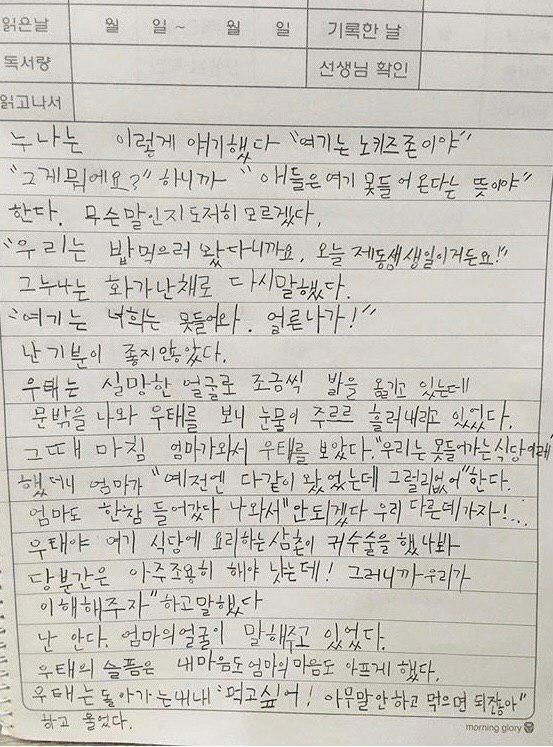 읽은날 월 일 ~ 월 일 기록한 날
독서량 선생님 확인
읽고나서
누나는 이렇게 얘기했다 "여기는 노키즈존이야"
"그게뭐에요?" 하니까 "애들은 여기 못들어온다는 뜻이야"
한다. 무슨말인지도저히 모르겠다.
"우리는 밥먹으러 왔다니까요. 오늘 제동생생일이거든요!"
그누나는 화가난채로 다시말했다.
"여기는 너희는 못들어와. 얼른나가!"
난 기분이 좋지안았다.
우태는 실망한 얼굴로 조금씩 발을 옮기고 있는데
문밖을 나와 우태를 보니 눈물이 주르르 흘러내리고 있었다.
그때 마침 엄마가와서 우태를 보았다. "우리는 못들어가는 식당이래"
했더니 엄마가 "예전엔 다같이 왔었는데 그럴리없어"한다.
엄마도 한참 들어갔다 나와서 "안되겠다 우리 다른데가자!...
우태야 여기 식당에 요리하는 삼촌이 귀수술을 했나봐
당분간은 아주조용히 해야 낫는데! 그러니까우리가
이해해주자"하고말했다
난 안다. 엄마의얼굴이 말해주고 있었다.
우태의 슬픔은 내마음도 엄마의 마음도 아프게 했다.
우태는 돌아가는내내 "먹고싶어! 아무말 안하고 먹으면 되잖아"
하고 울었다.
morning glory